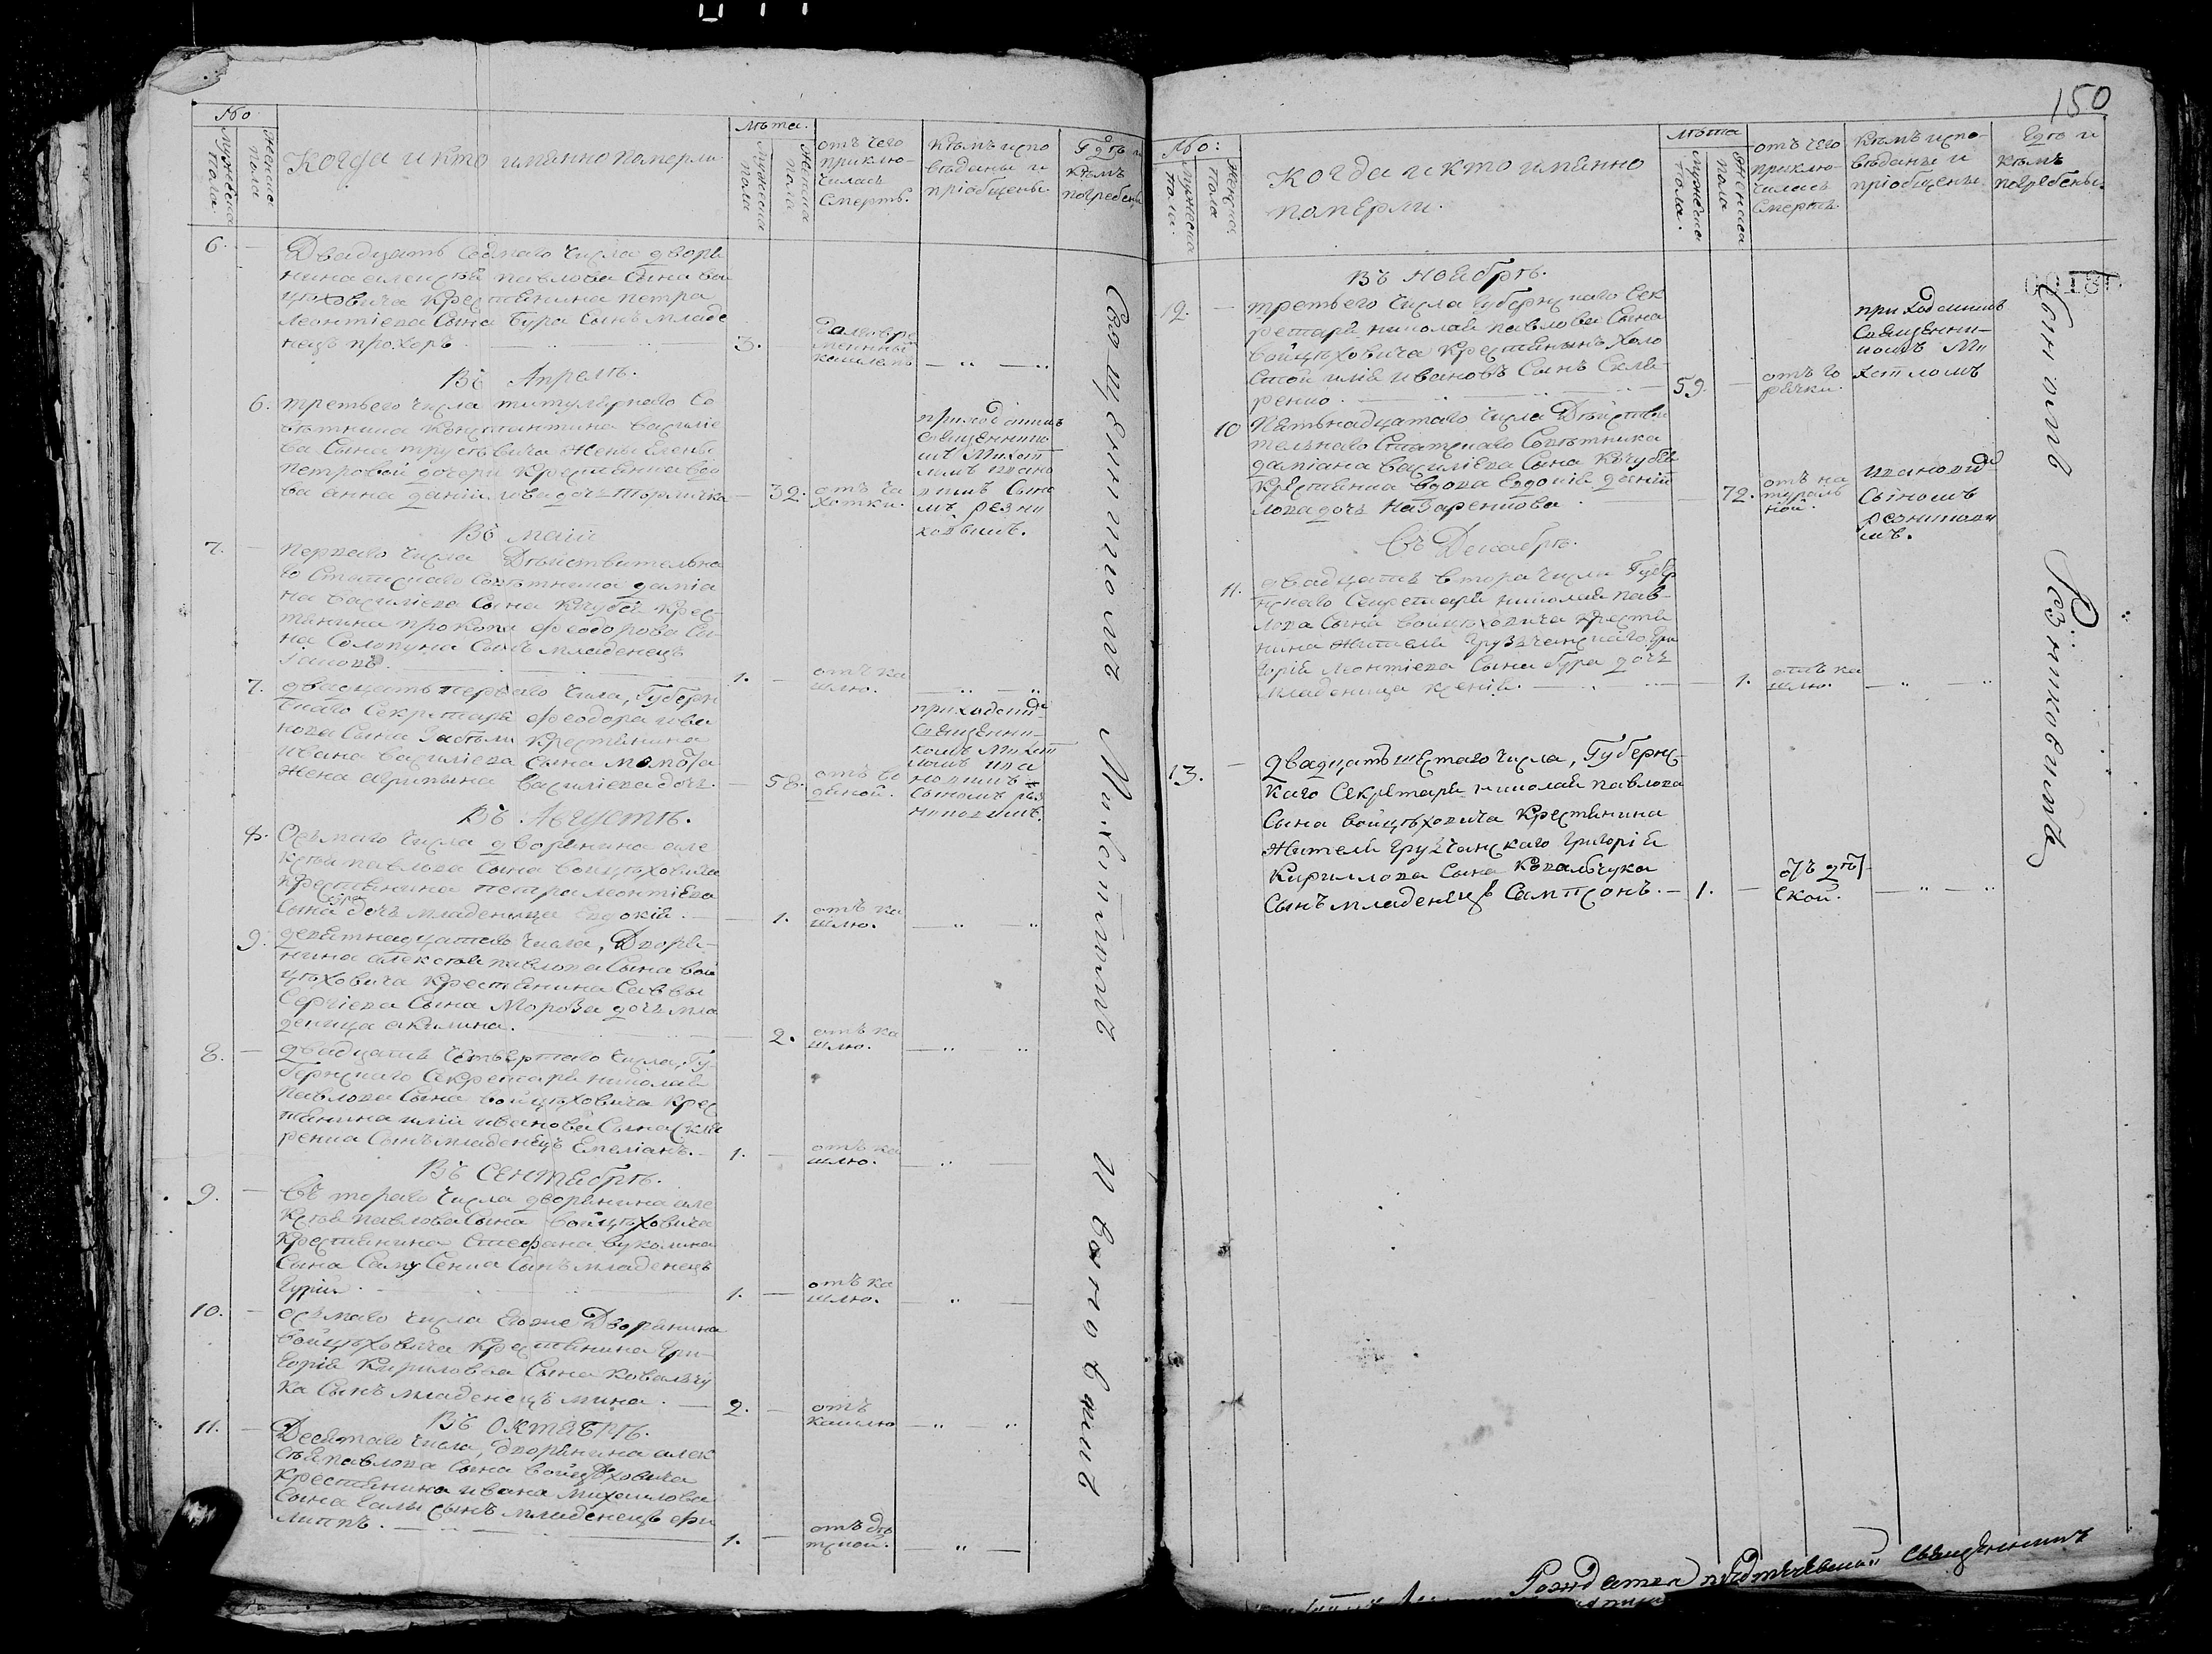 №
Мужеска пола
Женска пола
Когда и кто имянно померли
Лѣта.
Мужеска пола
Женска пола
отъ чего
приклю-
чилась
Смерть.
Кѣмъ испо
вѣданы и
пріобщены
Гдѣ и
кѣмъ
погребены
6.
Двадцать седмаго числа дворя
нина алексѣя павлова Сына вой
цѣховича крестянина петра
Леонтіева Сына Бура Сынъ младе
нецъ прохоръ
3.
Въ Апрелѣ.
6. третьего числа титулярнаго Со
вѣтника констянтина василіе
ва Сына жены Елены
петровой дочери крестянка вдо
ва анна даніилова дочь
32.
отъ ча
хотки.
приходскимъ
Священнико
мъ Михаи
ломъ ивано
вимъ Сыно
мъ резни
ковымъ.
Въ маіи
7.
перваго числа Дѣйствительна
го Статскаго Совѣтника даміа
на василіева Сына Кочубея крес
тянина прокопа феодорова Сы
на Солопуна Сынъ младенецъ
1.
отъ ка
шлю.
7. двадцать перваго числа, Губерн
скаго Секретаря феодора ива
нова Сына крестянина
ивана василіева Сына
жена агрипына василіева дочь.
58.
отъ во
дяной.
приходскимъ
Священни-
комъ Михаи
ломъ ива
новимъ
Сыномъ рез
никовимъ.
Въ Августѣ.
8. Осьмаго числа дворянина але
ксѣя павлова Сына войцѣховича
крестянина петра леонтіева
Сына Бура дочь младеница Евдокія.
1.
отъ ка
шлю.
9. девятнадцатаго числа, Дворя-
нина алексѣя павлова Сына вой
цѣховича крестянина Саввы
Сергіева Сына Мороза дочь мла
деница акилина.
2.
отъ ка
шлю.
8.
двадцать четвертаго числа, Гу-
бернскаго Секретаря николая
павлова Сына войцѣховича крес
тянина иліи иванова Сына Скля
ренка Сынъ младенецъ Емеліанъ.
1.
отъ ка
шлю.
Въ Сентябрѣ.
9.
втораго числа дворянина але
ксѣя павлова Сына войцѣховича
крестянина Стефана вуколина
Сына Сынъ младенецъ
Гурій.
1.
отъ ка
шлю.
10.
осьмаго числа Егоже Дворянина
войцѣховича крестянина Гри-
горія Кирилова Сына Ковальчу
ка Сынъ младенецъ мина.
2.
отъ
кашлю
Въ Октябрѣ.
11.
Десятаго числа, дворянина алек
сѣя павлова Сына войцѣховича
крестянина ивана михаилова
Сына Галы Сынъ младенецъ фи
липпъ.
1.
отъ дѣ
тской.
Священникъ Михаилъ Ивановичъ
150
№:
Мужеска пола.
Женска пола
Когда и кто имянно
померли.
Лѣта
Мужеска пола.
Женска пола
отъ чего
приклю-
чилась
Смерть
Кѣмъ испо-
вѣданы и
пріобщены.
Гдѣ и
кѣмъ
погребены.
Въ Ноябрѣ.
12.
третьего числа Губернскаго Сек
ретаря николая павлова Сына
войцѣховича крестянинъ холо
стой илія ивановъ Сынъ Скля-
ренко.
59.
отъ го
рячки.
приходскимъ
Священни-
комъ Ми
хаиломъ
10 Пятьнадцатаго числа Дѣйстви
тельнаго Статскаго Совѣтника
даміана василіева Сына Кочубея
крестянка вдова Евдокія даніи
лова дочь Назаренкова
72.
отъ на
тураль
ной.
ивановим
Сыномъ
резникови
мъ.
Въ Декабрѣ.
11. двадцать втора числа Губер
нскаго Секретаря николая пав-
лова Сына войцѣховича крестя
нина жителя грузчанскаго Гри
горія леонтіева Сына бура дочь
младеница ксенія.
1.
отъ ка
шлю.
13.
двадцать шестаго числа, Губернс-
каго Секретаря николая павлова
Сына войцѣховича крестянина
жителя грузчанскаго григорія
Кириллова Сына Ковальчука
Сынъ младенецъ Сампсонъ.
1.
отъ дѣт
ской.
Резниковичъ
Рождества предтечевской священникъ